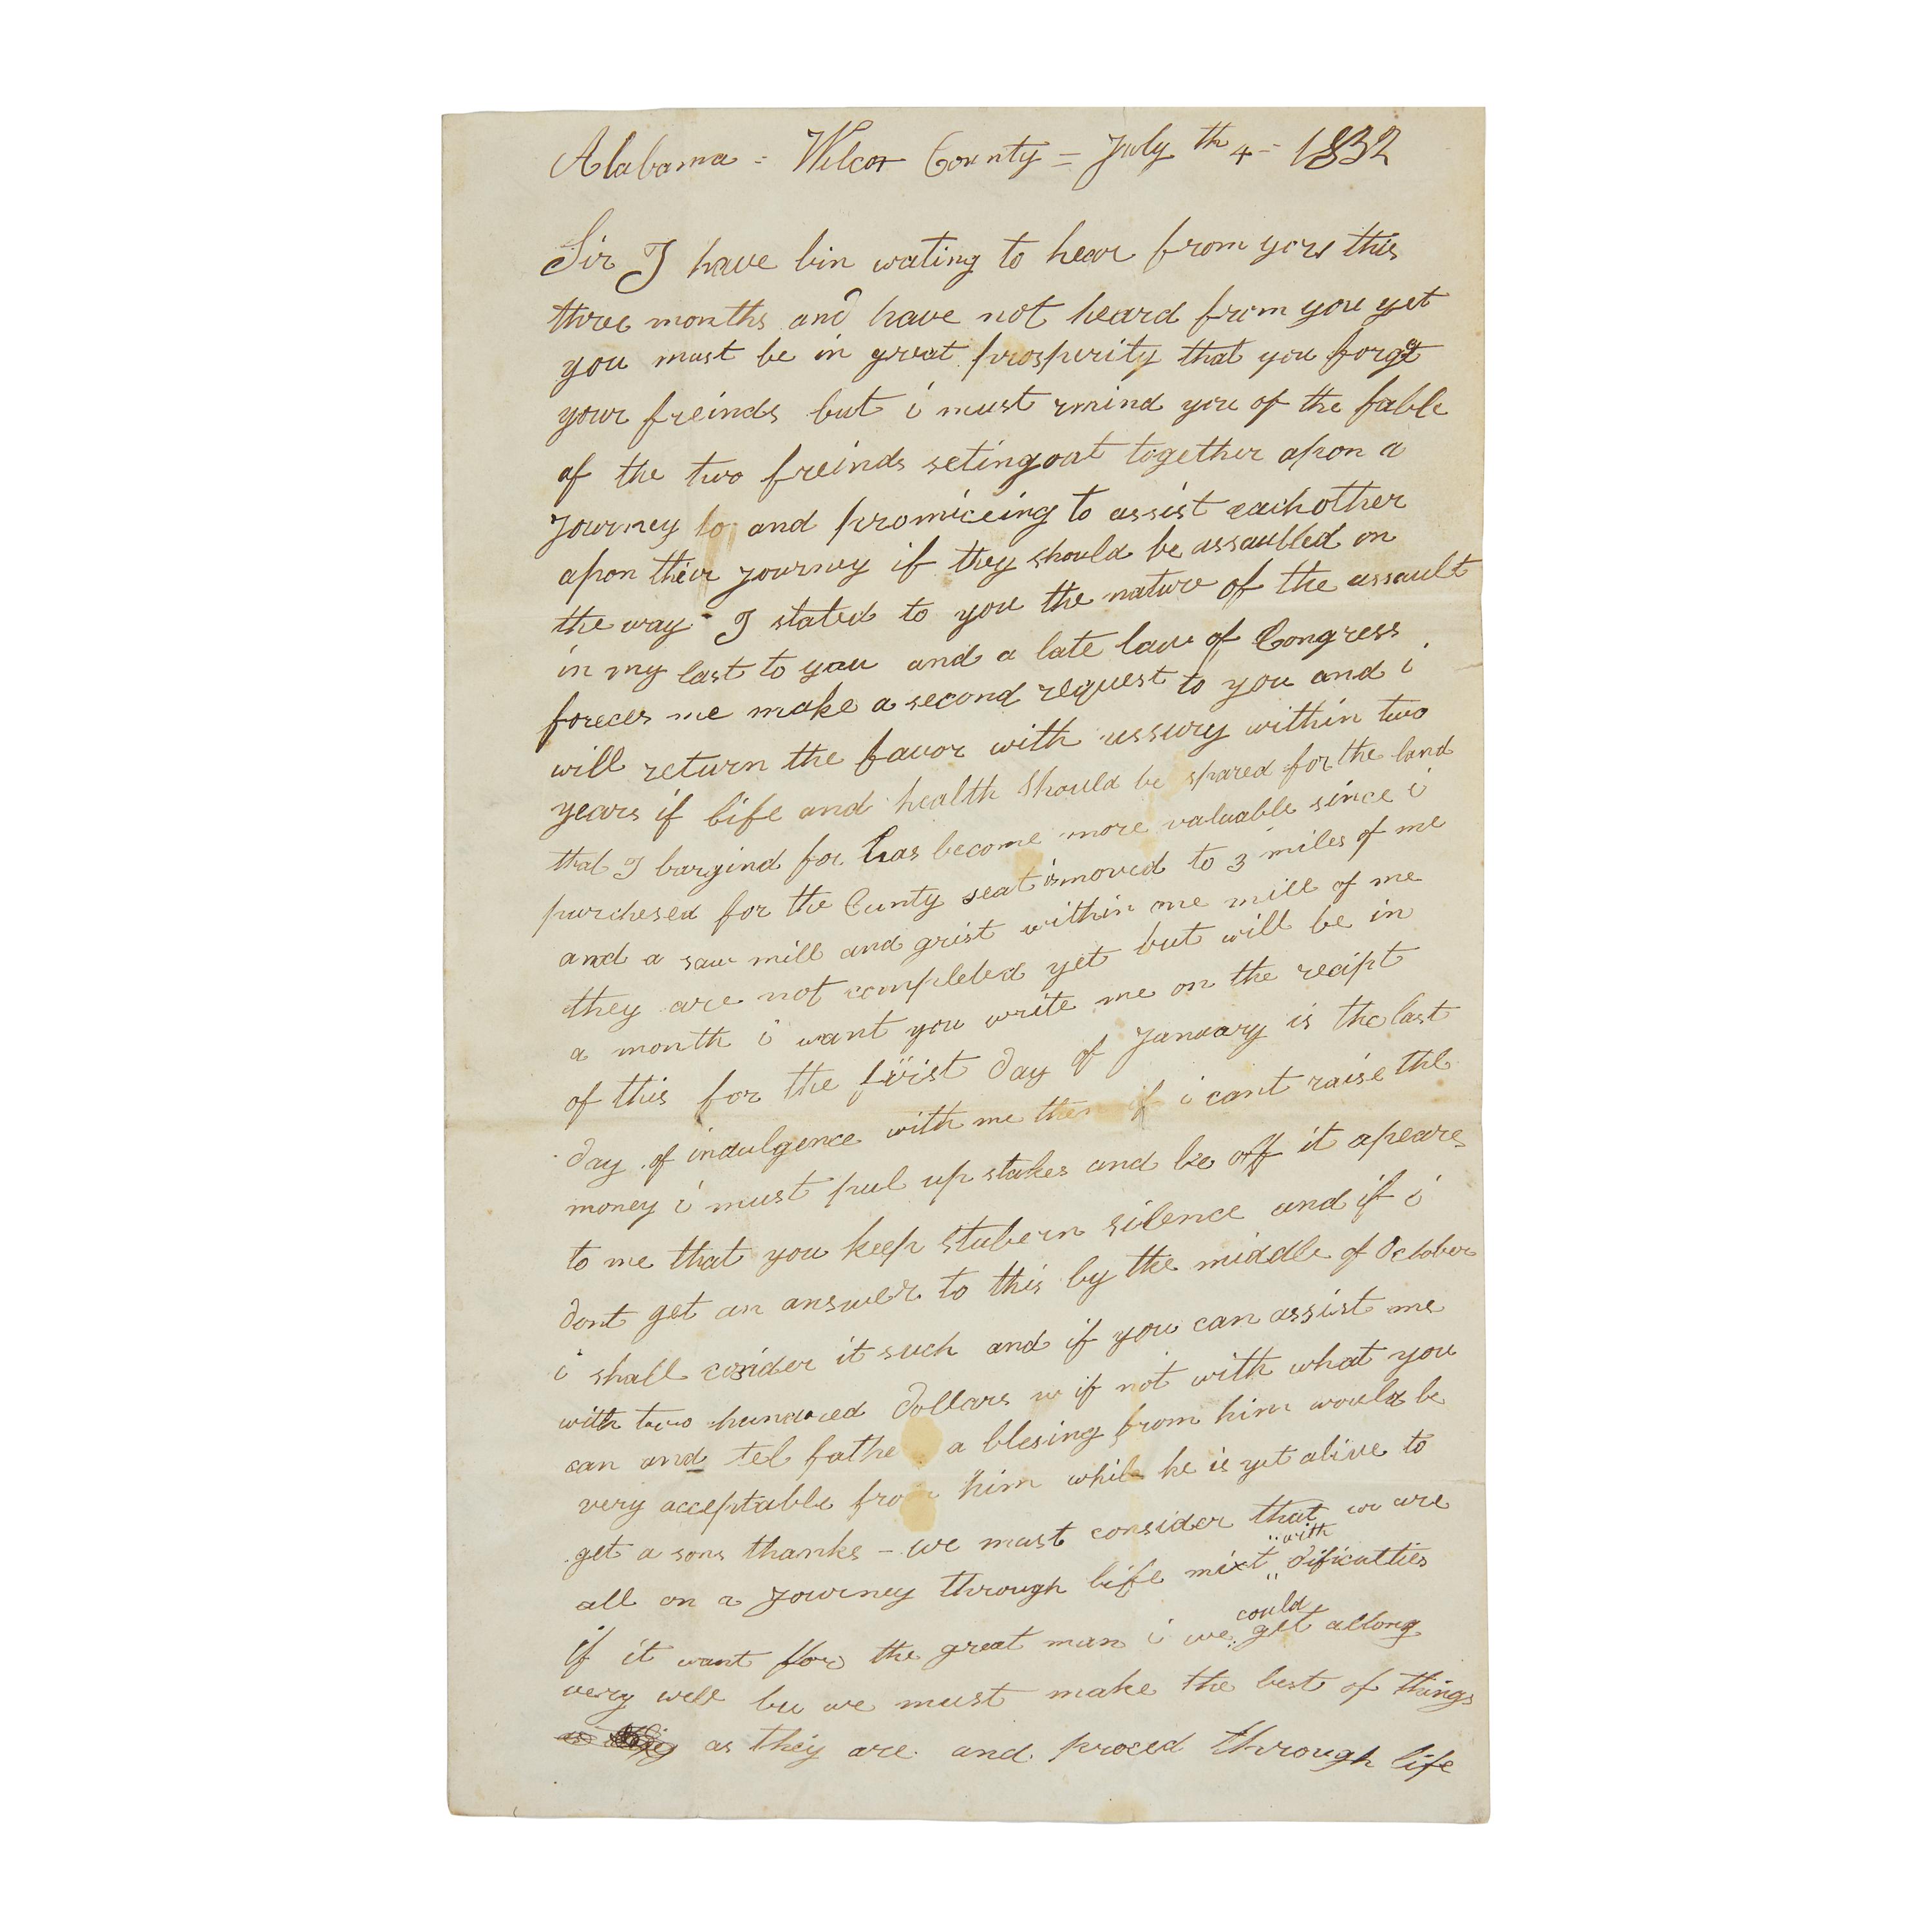 Alabama = Wilcox County = July th 4 = 1832
Sir I have bin wating to hear from you this
three months and have not heard from you yet
you must be in great prosperity that you forget
your freinds but i must rmind you of the fable
of the two freinds seting out together apon a
Journey to and promiceing to assist each other
apon their journey if they should be assaulted on
the way - I stated to you the nature of the assault
in my last to you and a late law of Congress
foreces me make a second request to you and i
will return the favor with ussury within two
years if life and health should be spared for the land
that I bargind for has become more valuable since i
purchesed for the Cunty seat is moved to 3 miles of me
and a saw mill and grist within one mill of me
they are not completed yet but will be in
a month i want you write me on the recipt
of this for the first day of January is the last
day of indulgence with me then if i cant raise the
money i must pul up stakes and be off it apeares
to me that you keep stubern silence and if i
dont get an answer to this by the middle of October
i shall cosider it such and if you can assist me
with two hundred dollars if not with what you
can and tel fathe a blesing from him would be
very acceptable from him while he is yet alive to
get a sons thanks - we must consider that we are
all on a Journey through life mixt with dificulties
if it want for the great man i we could get allong
very well bu we must make the best of things
as they are and proced through life